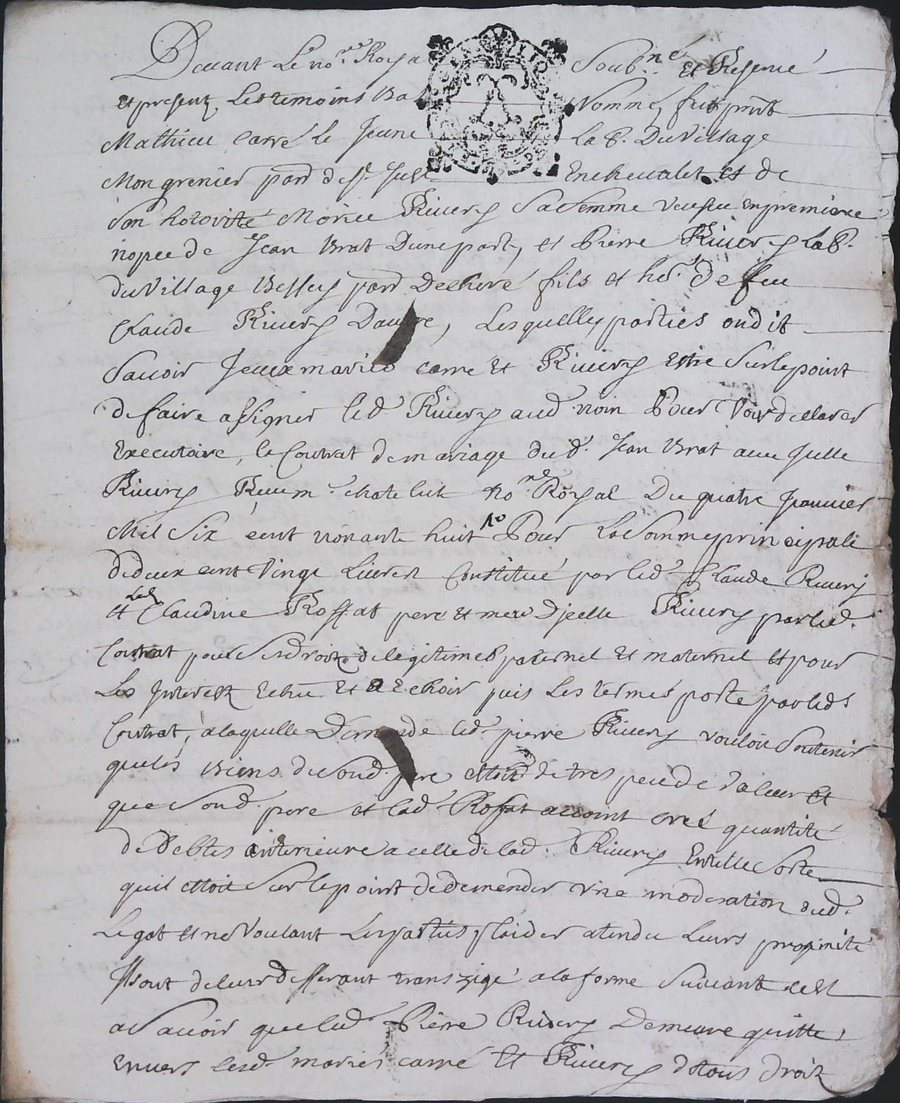 Devant Le no.re Roya Soub.né et Reservé
et present, Les temoins Ba Nommés fut p.nt
Mathieu carré le Jeune La.b. Du Village
Mongrenier par.d de S.t Just Enchevalet et de
Son hotorité Morice Rivery Sa femme veufve en premiere
nopce de Jean Brat Dune part, et Pierre Rivery La.b.
du Village Bessey par.d Decheré fils et he.r De feu
Claude Rivery Dautre, Lesquelles parties ondit
Savoir Jceux mariés carré et Rivery Estre Sur le point
de faire assigner led. Rivery aud. noin Pour Voir declarer
Executoire, le Contrat de mariage du d. Jean Brat avec Jcelle
Rivery Receu m.e chatelut no.re Royal Du quatre Janvier
Mil Six cent nonante huit Pour La Somme principale
de deux cent Vingt Livres Constitué par led. Claude Rivery
et lad. Claudine Roffat pere et mere Djcelle Rivery par led.
Contrat pour Ses droits de legitimes paternel et maternel et pour
Les Interest Echu et a Echoir puis Les termes porté par led.
Contrat, a laquelle Demande led. pierre Rivery vouloit Soutenir
que les Biens du Soud. pere Etoit de tres peu de Valeur et
que Soud. pere et lad. Roffat avoint creé quantité
de Debtes anterieure a celle de lad. Rivery En telle Sorte
quil Etoit Sur le point de demender une moderation dud.
Legat et ne Voulant Les parties plaider atendu Leurs proximité
Sont de leur differant tranzigé a la forme Suivant cest
a Savoir que led. Pierre Rivery Demeure quitte
Envers lesd. mariés carré et Rivery de tous droit